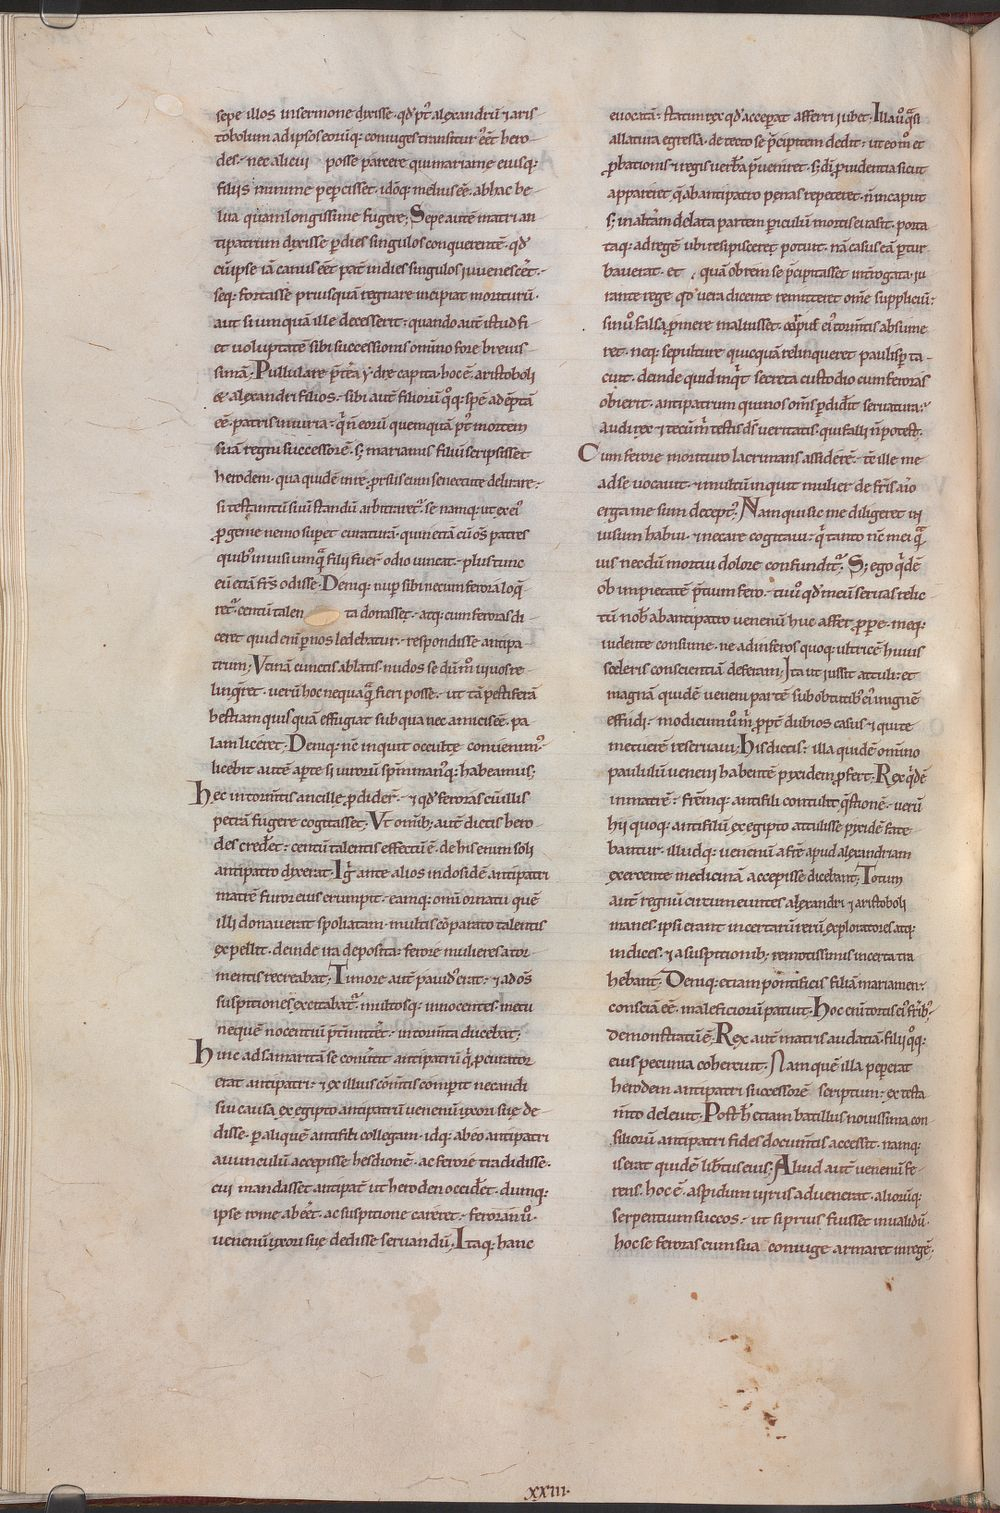 sepe illos in sermone dixisse · qđ p̃t alexandrũ ⁊ aris
tobolum ad ipsos eorũq; coniuges transitur̃ eẽt hero
des · nec alicui posse parcere qui mariamę eiusq;
filiis minime pepercisset · idõq; meliuseẽ · ab hac be
lua quam longissime fugere; Sepe autẽ matri an
tipatrum dixisse p dies singulos conquerentẽ · qđ
cũ ipse iã canus eẽt · pat̃ indies singulos iuuenescet̃ ·
seq; fortasse priusquã regnare incipiat moriturũ ·
aut si umquã ille decesserit · quando autẽ istud fi
et uoluptatẽ sibi successionis omnino fore breuis
simã; Pullulare p̃tẽa ydrę capita · hoc ẽ · aristoboli
& alexandri filios · sibi autẽ filiorũ qͦq; spẽ adẽptã
eẽ · patris iniuria · q̃ n̄ eorũ quemquã p̃t mortem
suã regni successorẽ · s; mariamis filiũ scripsisset
herodem · qua quidẽ in re prsus eum senectute delirare ·
si testamtũ suũ standũ arbitraretᷣ · se namq; ut ex eiͦ
pgenie nemo supet curaturã · qui n etiã cũ oṽs patres
quibͦ inuisi umq̃ filii fuer̃ odio uincat · plus tunc
eũ etiã frẽs odisse · Denq; nup sibi necum ferorã loq̃
retᷣ · centũ talen ta donasset · atq; cum feroras di
ceret quid enĩ p nos ledebatur · respondisse antipa
trum; Vtinã cunctis ablatis · nudos se dũm̊ uiuos re
linq̃ret · uerũ hoc nequaq̃ fieri posse · ut tã pestiferã
bestiam quisquã effugiat sub qua nec amicis eẽ · pa
lam liceret; Denq; nc̃ inquit occulte conienimͦ ·
licebit autẽ apte si uirorũ spm̃ manͦq; habeamus;
Hec in torm̃tis ancille pdider̃ · ⁊ qđ feroras cũ illis
petrã fugere cogitasset · Vt om̃ib; autẽ dictis hero
des cred̃et · centũ talentis effectũ ẽ · de his enim soli
antipatro dixerat · Ig̃ ante alios in dosidẽ antipatri
matrẽ furor eius erumpit · eamq; om̃i ornatu quẽ
illi donauerat spoliatam · multis cõparato talentis
expellit · deinde ira deposita · ferore mulieres a tor
mentis recreabat; Timore autẽ pauidͦ erat · ⁊ ad oṽs
suspitiones excitabatᷣ · multosq; innocentes · metu
ne quẽ nocentiũ p̃t̃mittet̃ · in torm̃ta ducebat;
Hinc ad samaritã se conũtit antipatrũ q̃ pcurator
erat antipatri · ⁊ ex illius torm̃tis comperit necandi
sui causa · ex egipto antipatrũ uenenũ uxori suę de
disse · p aliquẽ antifili collegam · idq; ab eo antipatri
auunculũ accepisse hesdionẽ · ac ferore tradidisse ·
cui mandasset antipat̃ ut heroden occid̃et · dumq;
ipse rome abeẽt · ac suspitione careret · feroram ũͦ ·
uenenũ uxori suę dedisse seruandũ; Itaq; hanc
euocatã · statim rex qđ acceperat afferri iubet · Illa ũͦ q̃si
allatura egressa · de tecto se p̃cipitem dedit · ut eo m̃ et
probationis ⁊ regis uerb̃a p̃ueniret · s; di prouidentia sicut
appareret q̃ ab antipatro penas repeteret · n̄ in caput
s; in alt̃am delata partem periculũ mortis euasit · porta
taq; ad regẽ ubi resipiscere potuit · nã casus eã ptur
bauerat · et quã ob rem se p̃cipitasset int̃rogata · iu
rante rege qđ uera dicente remitteret om̃e suppliciũ ·
sin ũͦ falsa pmere maluisset · corp̃ eiͦ torm̃tis absume
ret · neq; sepulture quicquã relinqueret paulisp ta
cuit · deinde quid inq̃t secreta custodio cum feroras
obierit · antipatrum qui nos om̃s pdid̃it seruatura ·
audi rex ⁊ tecum̃ testis dš ueritatis · qui falli n̄ potest ·
Cum ferore morituro lacrimans assiderẽ · tẽ ille me
ad se uocauit · ⁊ multũ inquit mulier de fr̃is aĩo
erga me sum deceptͦ · Nam qui sic me diligeret in
uisum habui · ⁊ necare cogitaui · q̃ tanto nc̃ mei q̃
uis necdũ mortui dolore confunditᷣ · S; ego q̃dẽ
ob impietatẽ p̃tium fero · tu ũͦ qđ meũ seruas relic
tũ nob̃ ab antipatro uenenũ huc affer ppe · meq;
uidente consume · ne ad inferos quoq; ultricẽ huius
sceleris conscientiã deferam; Ita ut iussit attuli · et
magnã quidẽ ueneni partẽ sub obtutibͦ eiͦ in ignẽ
effudi · modicum ũͦ m̃ ppt̃ dubios casus ⁊ quite
metuerẽ reseruaui; His dictis · illa quidẽ omnino
paululũ ueneni habentẽ pyxidem pfert; Rex q̃dẽ
in matrẽ · fr̃emq; antifili contulit q̃stionẽ · uerũ
hii quoq; antifilũ ex egipto attulisse pyxidẽ fate
bantur · illudq; uenenũ a fr̃e apud alexandriam
exercente medicinã accepisse dicebant; Totum
autẽ regnũ circumeuntes alexandri ⁊ aristoboli
manes · ipsi erant incertarũ rerũ exploratores atq;
indices · ⁊ a suspitionib; remotissimis incerta tra
hebant; Denq; etiam pontificis filiã mariamen ·
consciã eẽ · maleficiorũ patuit · Hoc enĩ tortis eiͦ fr̃ibͦ
demonst̃atũ ẽ; Rex autẽ matris audatiã · filii qͦq;
eius pecunia cohercuit · Nam quẽ illa peperat
herodem antipatri successorẽ scriptum · ex testa
m̃to deleuit · Post h̃ etiam batillus nouissima con
siliorũ antipatri fides docum̃tis accessit · namq;
is erat quidẽ lib̃tus eius; Aliud autẽ uenenũ fe
rens · hoc ẽ · aspidum uirus aduenerat · aliorũq;
serpentium sucos · ut si prius fuisset inualidũ ·
hoc se feroras cum sua coniuge armaret in regẽ;
xxiii·